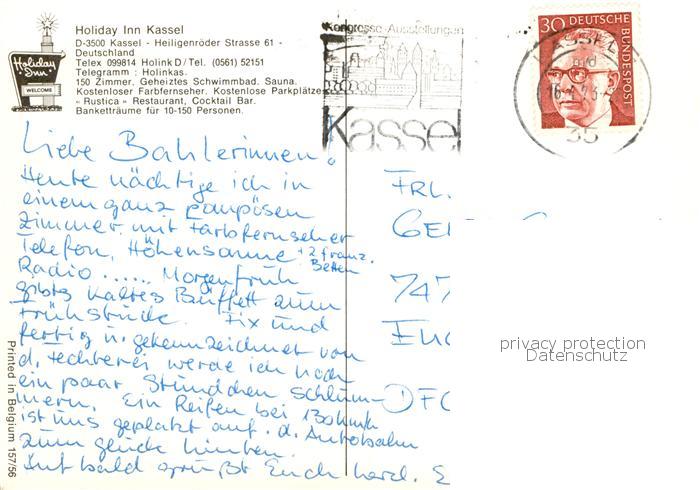 Holiday Inn Kassel
D-3500 Kassel - Heiligenröder Strasse 61 -
Deutschland
Telex 099814 Holink D / Tel. (0561) 52151
Telegramm : Holinkas.
150 Zimmer. Geheiztes Schwimmbad. Sauna.
Kostenloser Farbfernseher. Kostenlose Parkplätze
« Rustica » Restaurant, Cocktail Bar.
Banketträume für 10-150 Personen.
Holiday Inn
WELCOME
Kongresse - Ausstellungen
Kassel
30 DEUTSCHE BUNDESPOST
KASSEL
35
Liebe Bahlerinnen!
Heute nächtige ich in
einem ganz pompösen
Zimmer mit Farbfernseher
Telefon, Höhensonne + 2 franz. Betten
Radio ...... Morgen früh
gibts kaltes Büffett zum
Frühstück. Fix und
fertig u. gekennzeichnet von
d. Fechterei werde ich noch
ein paar Stündchen schlum-
mern. Ein Reifen bei 130 kmh
ist uns geplatzt auf d. Autobahn
zum Glück hinten.
Auf bald grüßt Euch herzl. E
FRL.
GE
747
DFG
privacy protection
Datenschutz
Printed in Belgium 157/56